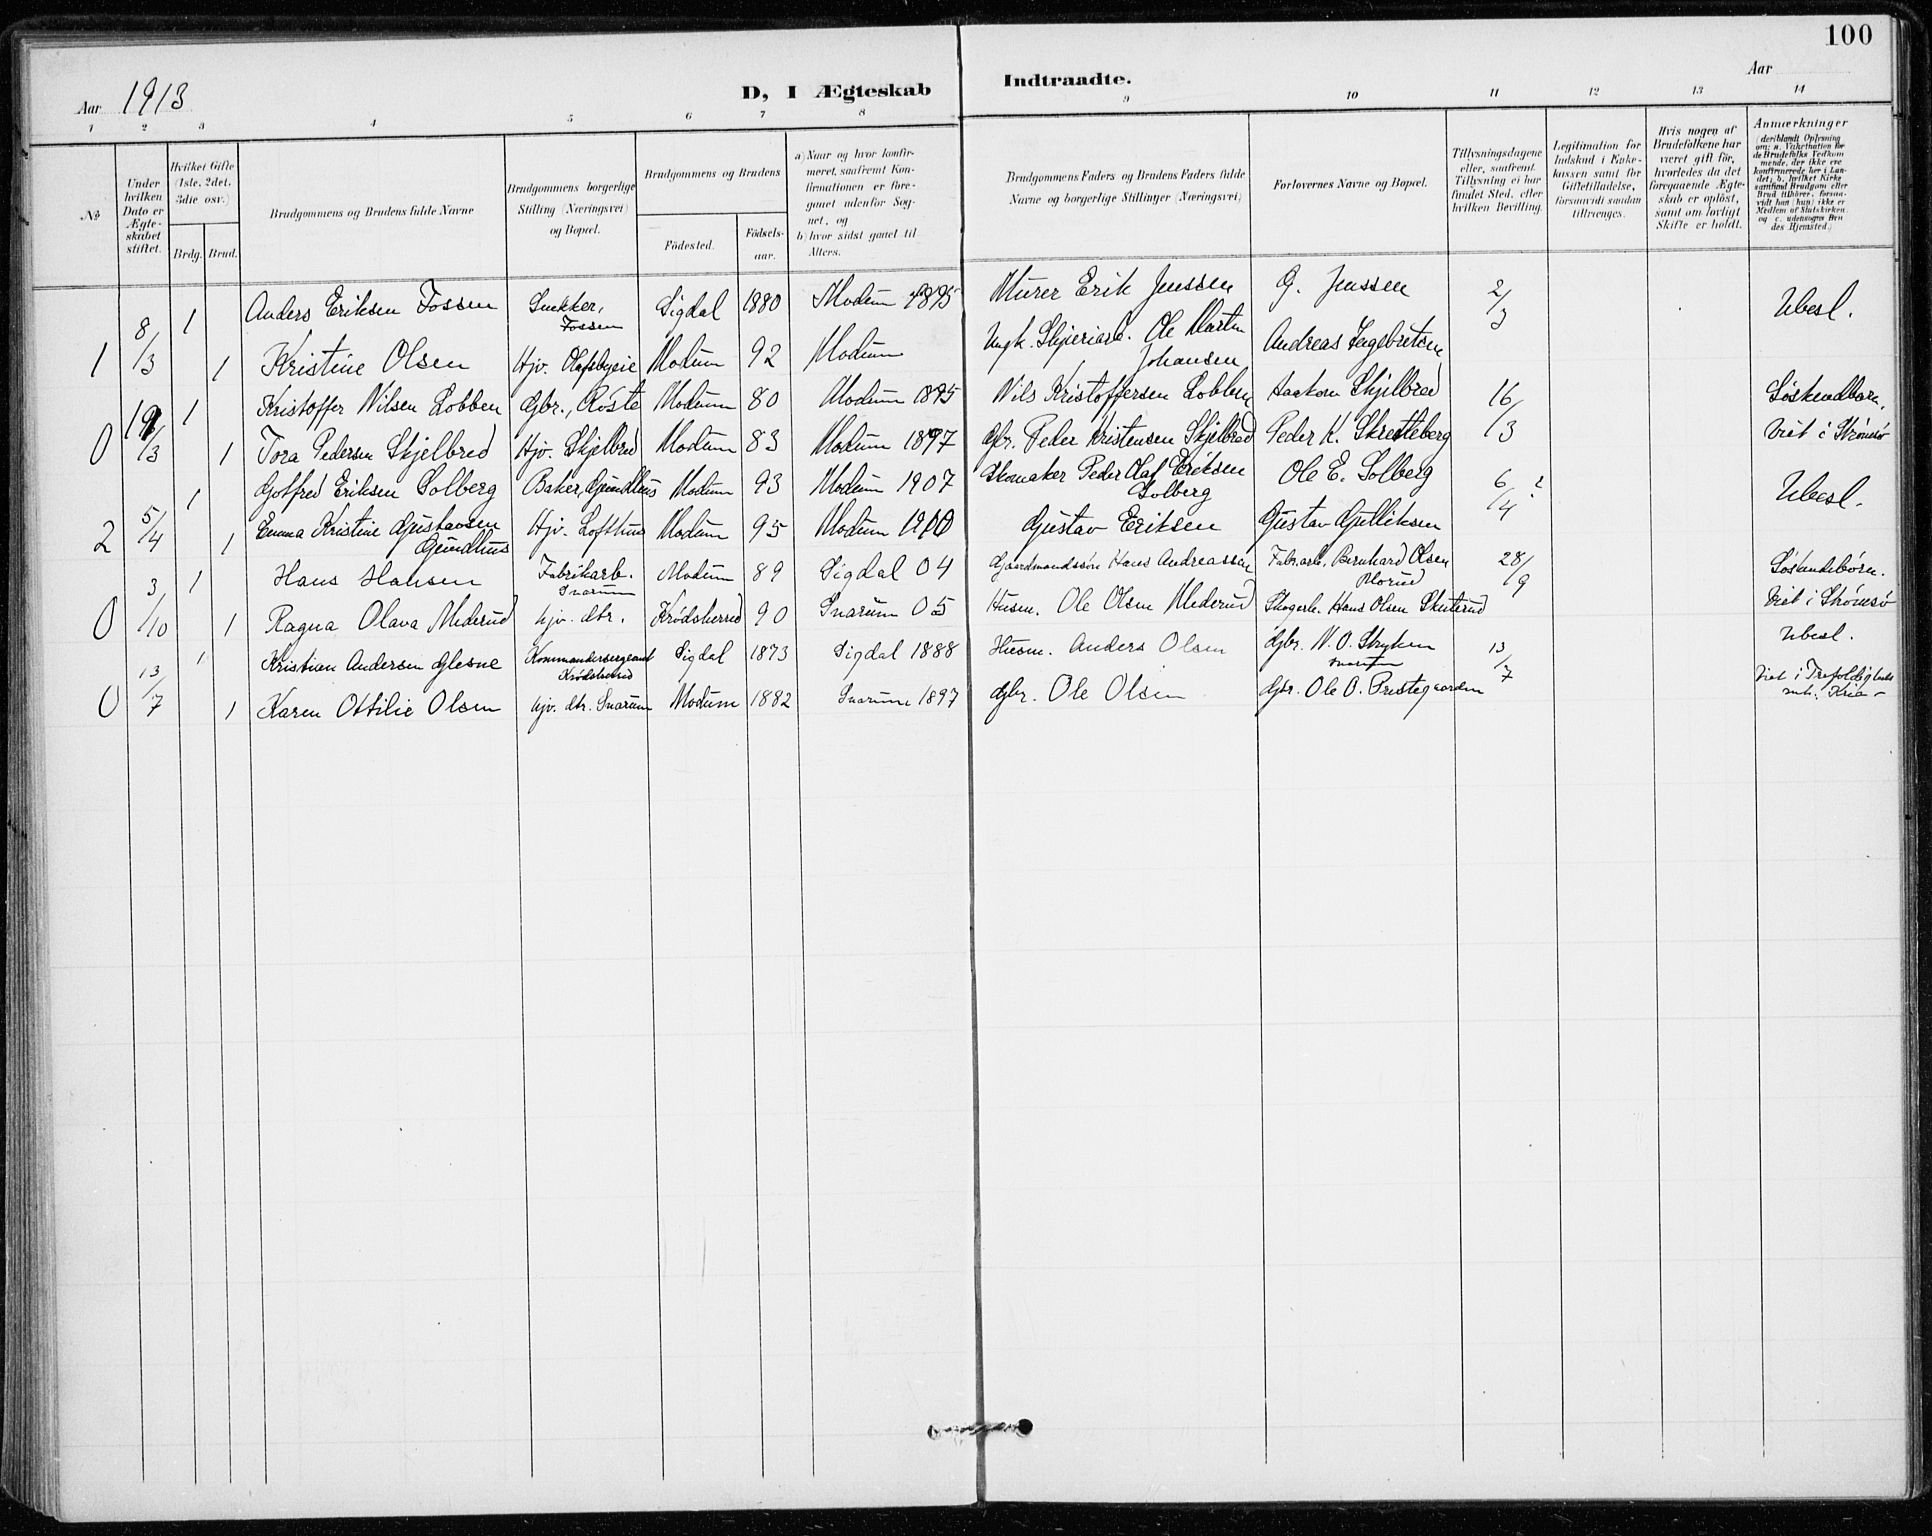 100
Aar 1913
D, I Ægteskab
Indtraadte.
Aar
1 2 3 4 5 6 7 8 9 10 11 12 13 14
No
Under hvilken Dato er Ægteskabet stiftet.
Hvilket Gifte (1ste, 2det, 3die osv.)
Brdg. Brud.
Brudgommens og Brudens fulde Navne
Brudgommens borgerlige Stilling (Næringsvei) og Bopæl.
Brudgommens og Brudens
Födested.
Födselsaar.
a) Naar og hvor konfirmeret, saafremt Konfirmationen er foregaaet udenfor Sognet, og
b) hvor sidst gaaet til Alters.
Brudgommens Faders og Brudens Faders fulde Navne og borgerlige Stillinger (Næringsvei)
Forlovernes Navne og Bopæl.
Tillysningsdagene eller, saafremt Tillysning ei har fundet Sted, efter hvilken Bevilling.
Legitimation for Indskud i Enkekassen samt for Giftetilladelse, forsaavidt saadan tiltrænges.
Hvis nogen af Brudefolkene har været gift før, hvorledes da det foregaaende Ægteskab er opløst, samt om lovligt Skifte er holdt.
Anmærkninger (deriblandt Oplysning om: a. Vakcination for de Brudefolks Vedkommende, der ikke ere konfirmerede her i Landet; b. hvilket Kirkesamfund Brudgom eller Brud tilhører, forsaavidt han (hun) ikke er Medlem af Statskirken, og c. udensogns Brudes Hjemsted.)
8/3 1 Anders Eriksen Fossen Snekker, Fossen Sigdal 1880 Modum 1895 Murer Erik Jenssen G. Jenssen 2/3 Ubesl.
1 1 Kristine Olsen Hjv. Olafsbyeie Modum 92 Modum Ungk. Ole Martin Johansen Andreas Ingebretsen
19/3 1 Kristoffer Nilsen Lobben Gbr., Röste Modum 80 Modum 1895 Nils Kristoffersen Lobben Haakon Skjelbred 16/3 Søskendbarn,
0 1 Tora Pedersen Skjelbred Hjv. Skjelbred Modum 83 Modum 1897 Gbr. Peder Kristensen Skjelbred Peder K. Skretteberg Viet i Strømsø
5/4 1 Gotfred Eriksen Solberg Baker, Gundhus Modum 93 Modum 1907 Skomaker Peder Olaf Eriksen Solberg Ole E. Solberg 6/4 ? Ubesl.
2 1 Emma Kristine Gustavsen Gundhus Hjv. Lofthus Modum 95 Modum 1910 Gustav Eriksen Gustav Gulliksen
3/10 1 Hans Hansen Fabrikarb. Snarum Modum 89 Sigdal 04 Gaardmandssøn Hans Andreassen Fabr.arb. Bernhard Olsen 28/9 Søskendebørn.
0 1 Ragna Olava Mederud hjv. dtr. Krødsherred 90 Snarum 05 Husm. Ole Olsen Mederud Skogarb. Hans Olsen Skuterud Viet i Strømsø
13/7 1 Kristian Andersen Glesne Kommandersergeant Krødsherred Sigdal 1873 Sigdal 1888 Husm. Anders Olsen Gbr. N. O. Stryken Snarum 13/7 Ubesl.
0 1 Karen Ottilie Olsen hjv. dtr. Snarum Modum 1882 Snarum 1897 Gbr. Ole Olsen Gbr. Ole O. Prestegaarden Viet i Trefoldigheds